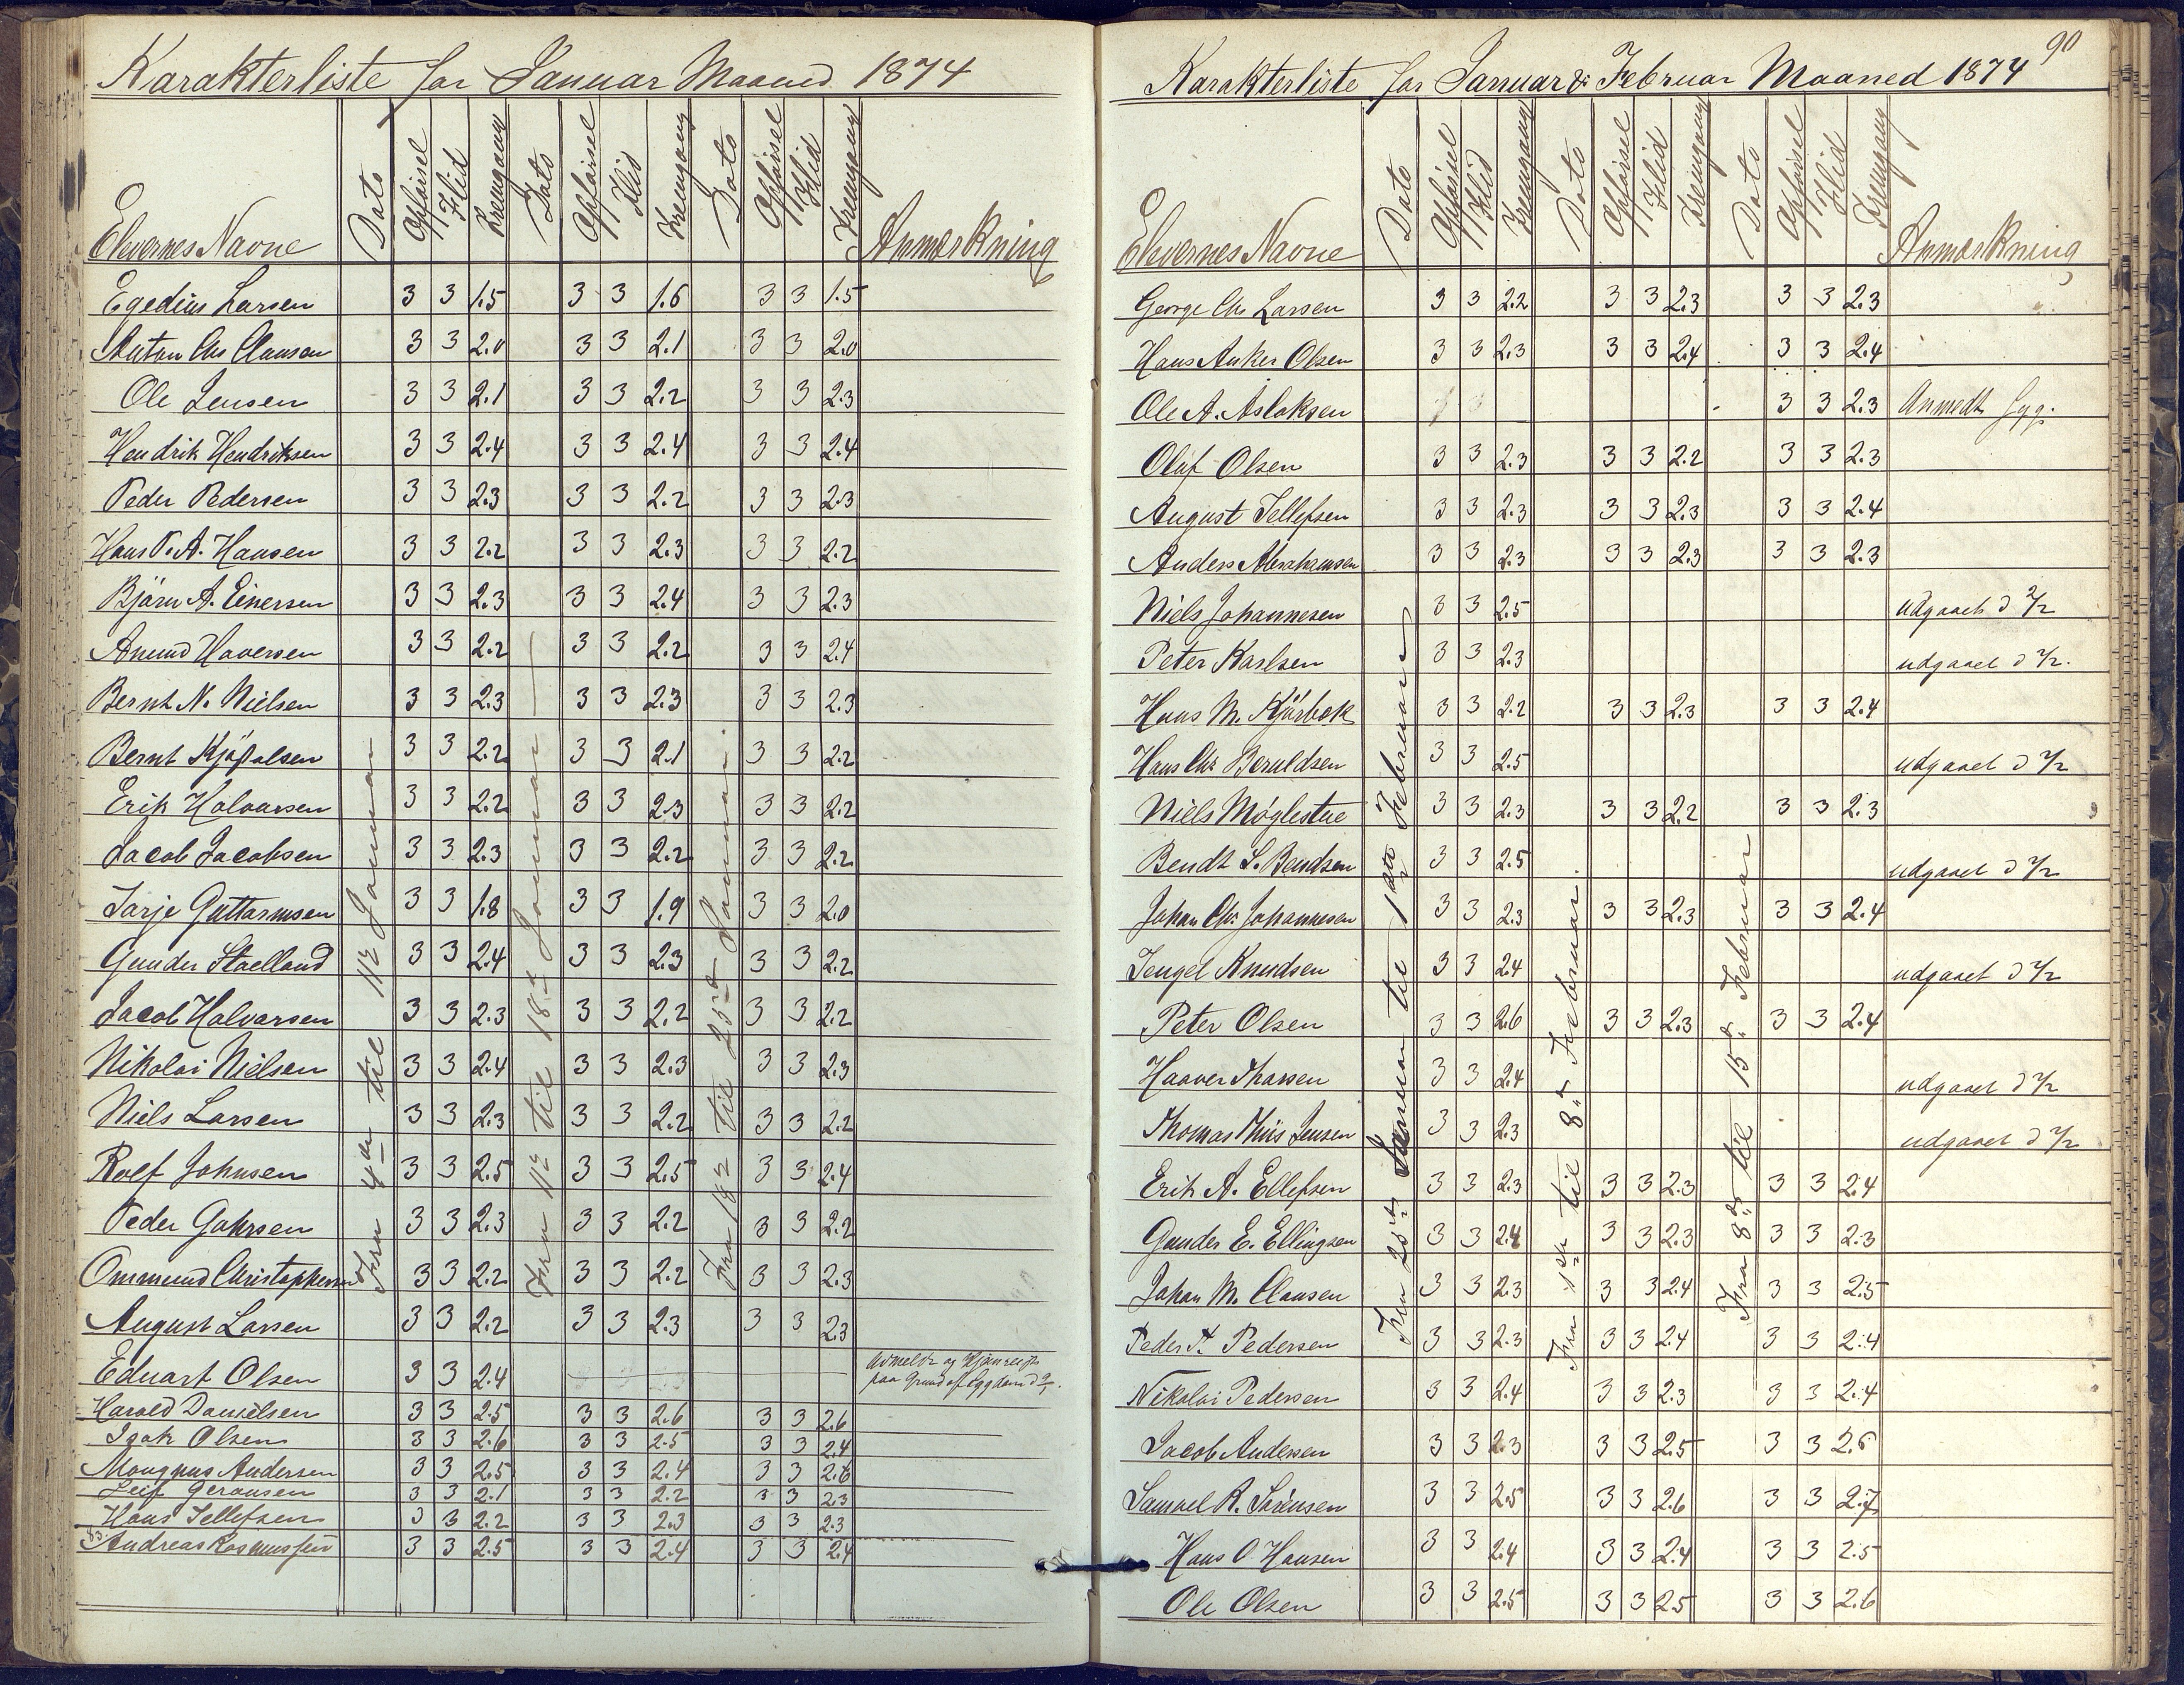 Karakterliste for Januar Maaned 1874
Elevernes Navne Dato Opførsel Flid Fremgang Dato Opførsel Flid Fremgang Dato Opførsel Flid Fremgang Anmærkning
Fra 4de til 11te Januar
Fra 11te til 18de Januar
Fra 18de til 25de Januar
Egedius Larsen 3 3 1.5 3 3 1.6 3 3 1.5
Anton Chr Clausen 3 3 2.0 3 3 2.1 3 3 2.0
Ole Jensen 3 3 2.1 3 3 2.2 3 3 2.3
Hendrik Hendriksen 3 3 2.4 3 3 2.4 3 3 2.4
Peder Pedersen 3 3 2.3 3 3 2.2 3 3 2.3
Hans P. A. Hansen 3 3 2.2 3 3 2.3 3 3 2.2
Björn A. Einersen 3 3 2.3 3 3 2.4 3 3 2.3
Anund Haversen 3 3 2.2 3 3 2.2 3 3 2.4
Bernt N. Nielsen 3 3 2.3 3 3 2.3 3 3 2.3
Bernt 3 3 2.2 3 3 2.1 3 3 2.2
Erik Halvarsen 3 3 2.2 3 3 2.3 3 3 2.2
Jacob Jacobsen 3 3 2.3 3 3 2.2 3 3 2.2
Tarje Guttormsen 3 3 1.8 3 3 1.9 3 3 2.0
Gunder Staelland 3 3 2.4 3 3 2.3 3 3 2.2
Jacob Halvarsen 3 3 2.3 3 3 2.2 3 3 2.2
Nikolai Nielsen 3 3 2.4 3 3 2.3 3 3 2.3
Niels Larsen 3 3 2.3 3 3 2.2 3 3 2.2
Rolf Johnsen 3 3 2.5 3 3 2.5 3 3 2.4
Peder Gahrsen 3 3 2.3 3 3 2.2 3 3 2.2
Ommund Christophersen 3 3 2.2 3 3 2.2 3 3 2.3
August Larsen 3 3 2.2 3 3 2.3 3 3 2.3
Eduart Olsen 3 3 2.4 paa Grund af
Harald Danielsen 3 3 2.5 3 3 2.6 3 3 2.6
Isak Olsen 3 3 2.6 3 3 2.5 3 3 2.4
Mougnus Andersen 3 3 2.5 3 3 2.4 3 3 2.6
Leif Geransen 3 3 2.1 3 3 2.2 3 3 2.3
Hans Tellefsen 3 3 2.2 3 3 2.3 3 3 2.3
Andreas Rasmussen 3 3 2.5 3 3 2.4 3 3 2.4
90
Karakterliste for Januar & Februar Maaned 1874
Elevernes Navne Dato Opførsel Flid Fremgang Dato Opførsel Flid Fremgang Dato Opførsel Flid Fremgang Anmærkning
Fra 25de Januar til 1ste Februar
Fra 1ste til 8de Februar.
Fra 8de til 15de Februar
George Chr Larsen 3 3 2.2 3 3 2.3 3 3 2.3
Hans Anker Olsen 3 3 2.3 3 3 2.4 3 3 2.4
Ole A. Aslaksen 3 3 2.3 Anmedt syg.
Oluf Olsen 3 3 2.3 3 3 2.2 3 3 2.3
August Tellefsen 3 3 2.3 3 3 2.3 3 3 2.4
Anders Abrahamsen 3 3 2.3 3 3 2.3 3 3 2.3
Niels Johannesen 3 3 2.5 udgaaet d 2/2
Peter Karlsen 3 3 2.3 udgaaet d 2/2.
Hans M. Kjärbek 3 3 2.2 3 3 2.3 3 3 2.4
Hans Chr Beruldsen 3 3 2.5 udgaaet d 2/2
Niels Møglestue 3 3 2.3 3 3 2.2 3 3 2.3
Bendt S. Bendsen 3 3 2.5 udgaaet d 2/2
Johan Chr. Johannesen 3 3 2.3 3 3 2.3 3 3 2.4
Tengel Knudsen 3 3 2.4 udgaaet d 2/2
Peter Olsen 3 3 2.6 3 3 2.3 3 3 2.4
Haaver Tharsen 3 3 2.4 udgaaet d 2/2
Thomas Thiis Jensen 3 3 2.3 udgaaet d 2/2
Erik A. Ellefsen 3 3 2.3 3 3 2.3 3 3 2.4
Gunder E. Ellingsen 3 3 2.4 3 3 2.3 3 3 2.3
Johan M. Clausen 3 3 2.3 3 3 2.4 3 3 2.5
Peder Pedersen 3 3 2.3 3 3 2.4 3 3 2.4
Nikolai Pedersen 3 3 2.4 3 3 2.3 3 3 2.4
Jacob Andersen 3 3 2.3 3 3 2.5 3 3 2.6
Samoel R. Sörensen 3 3 2.5 3 3 2.6 3 3 2.7
Hans O Hansen 3 3 2.4 3 3 2.4 3 3 2.5
Ole Olsen 3 3 2.5 3 3 2.5 3 3 2.6